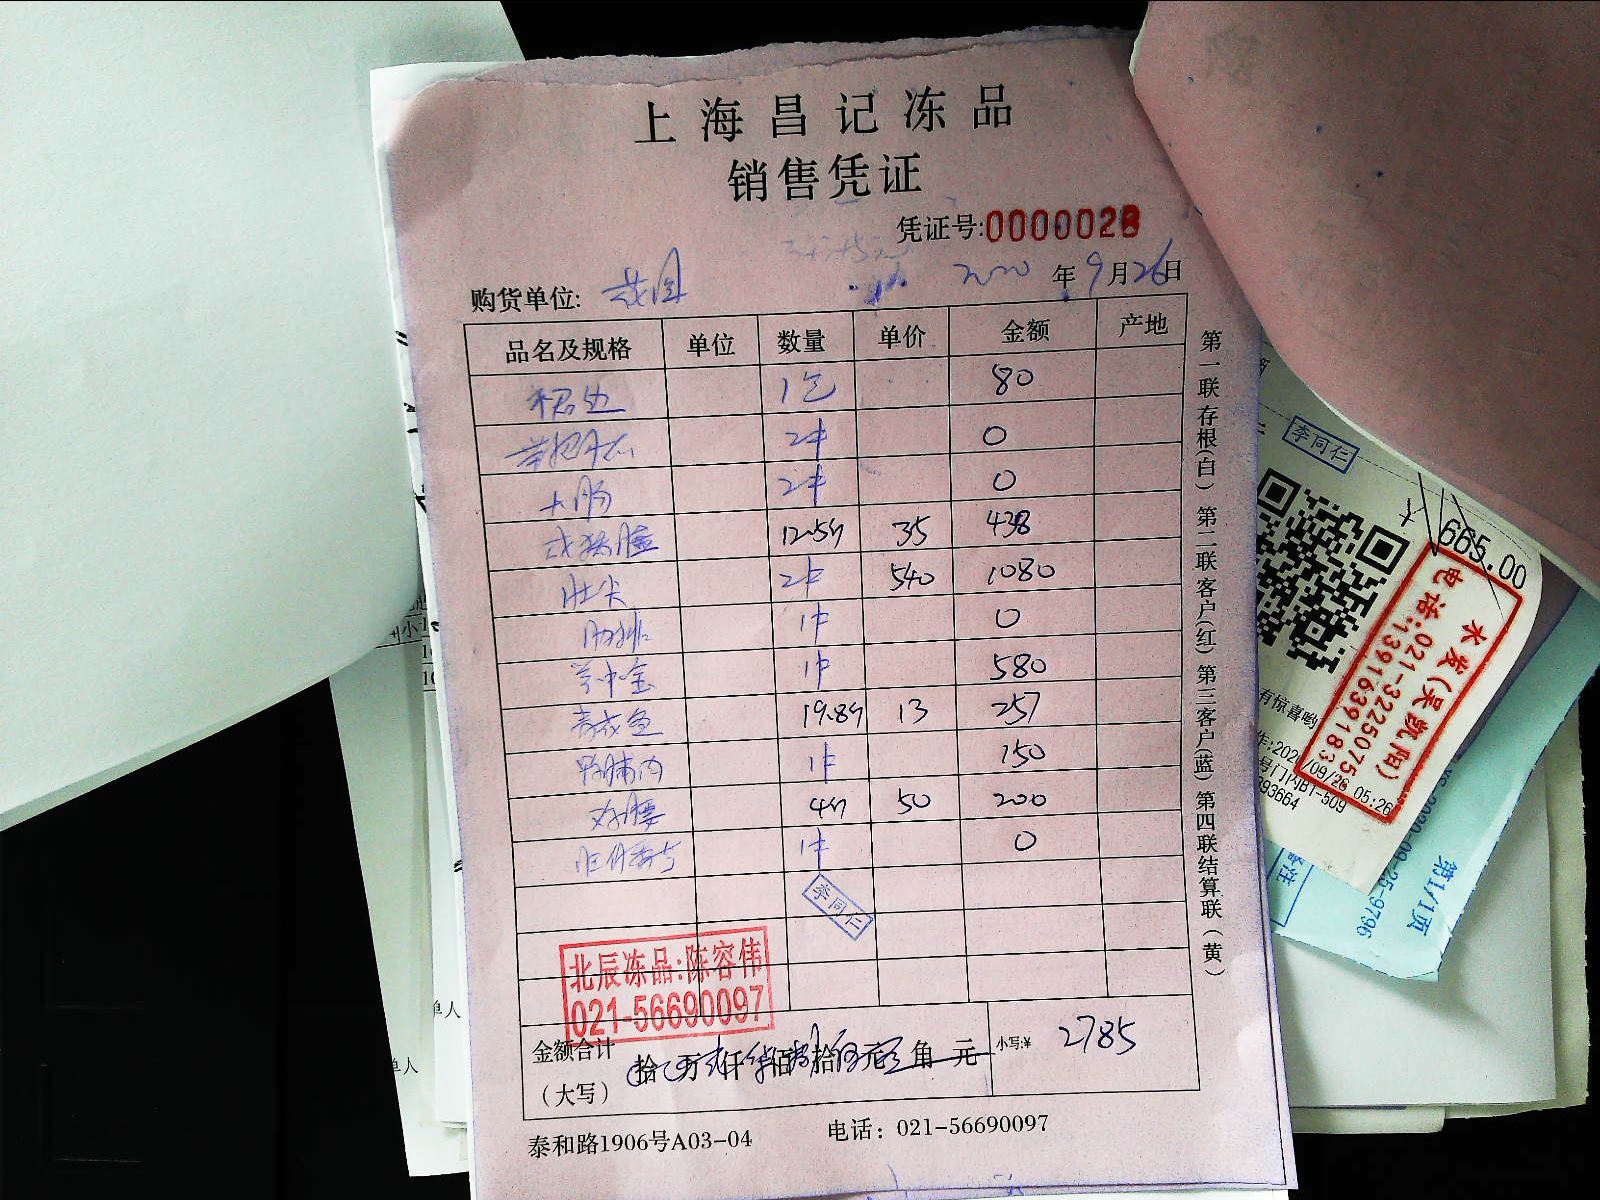 上海昌记冻品
销售凭证
凭证号:0000028
购货单位: 花园 2020年9月26日
品名及规格 单位 数量 单价 金额 产地
裙边 1包 80
2件 0
大肠 2件 0
12.5斤 35 438
肚尖 2件 540 1080
肋排 1件 0
1件 580
19.8斤 13 257
鸭脯肉 1件 150
4斤 50 200
1件 0
李同仁
北辰冻品:陈容伟
021-56690097
金额合计
(大写)
拾 万 仟 佰 拾 元 角 元 小写:¥ 2785
泰和路1906号A03-04 电话：021-56690097
第一联存根(白) 第二联客户(红) 第三客户(蓝) 第四联结算联(黄)
李同仁
665.00
水发(吴凯阳)
电话:021-32250755
13916391183
有惊喜哟
2020/09/26 05:26
号门内B1-509
393664
第1/1页
备注
单人
单人